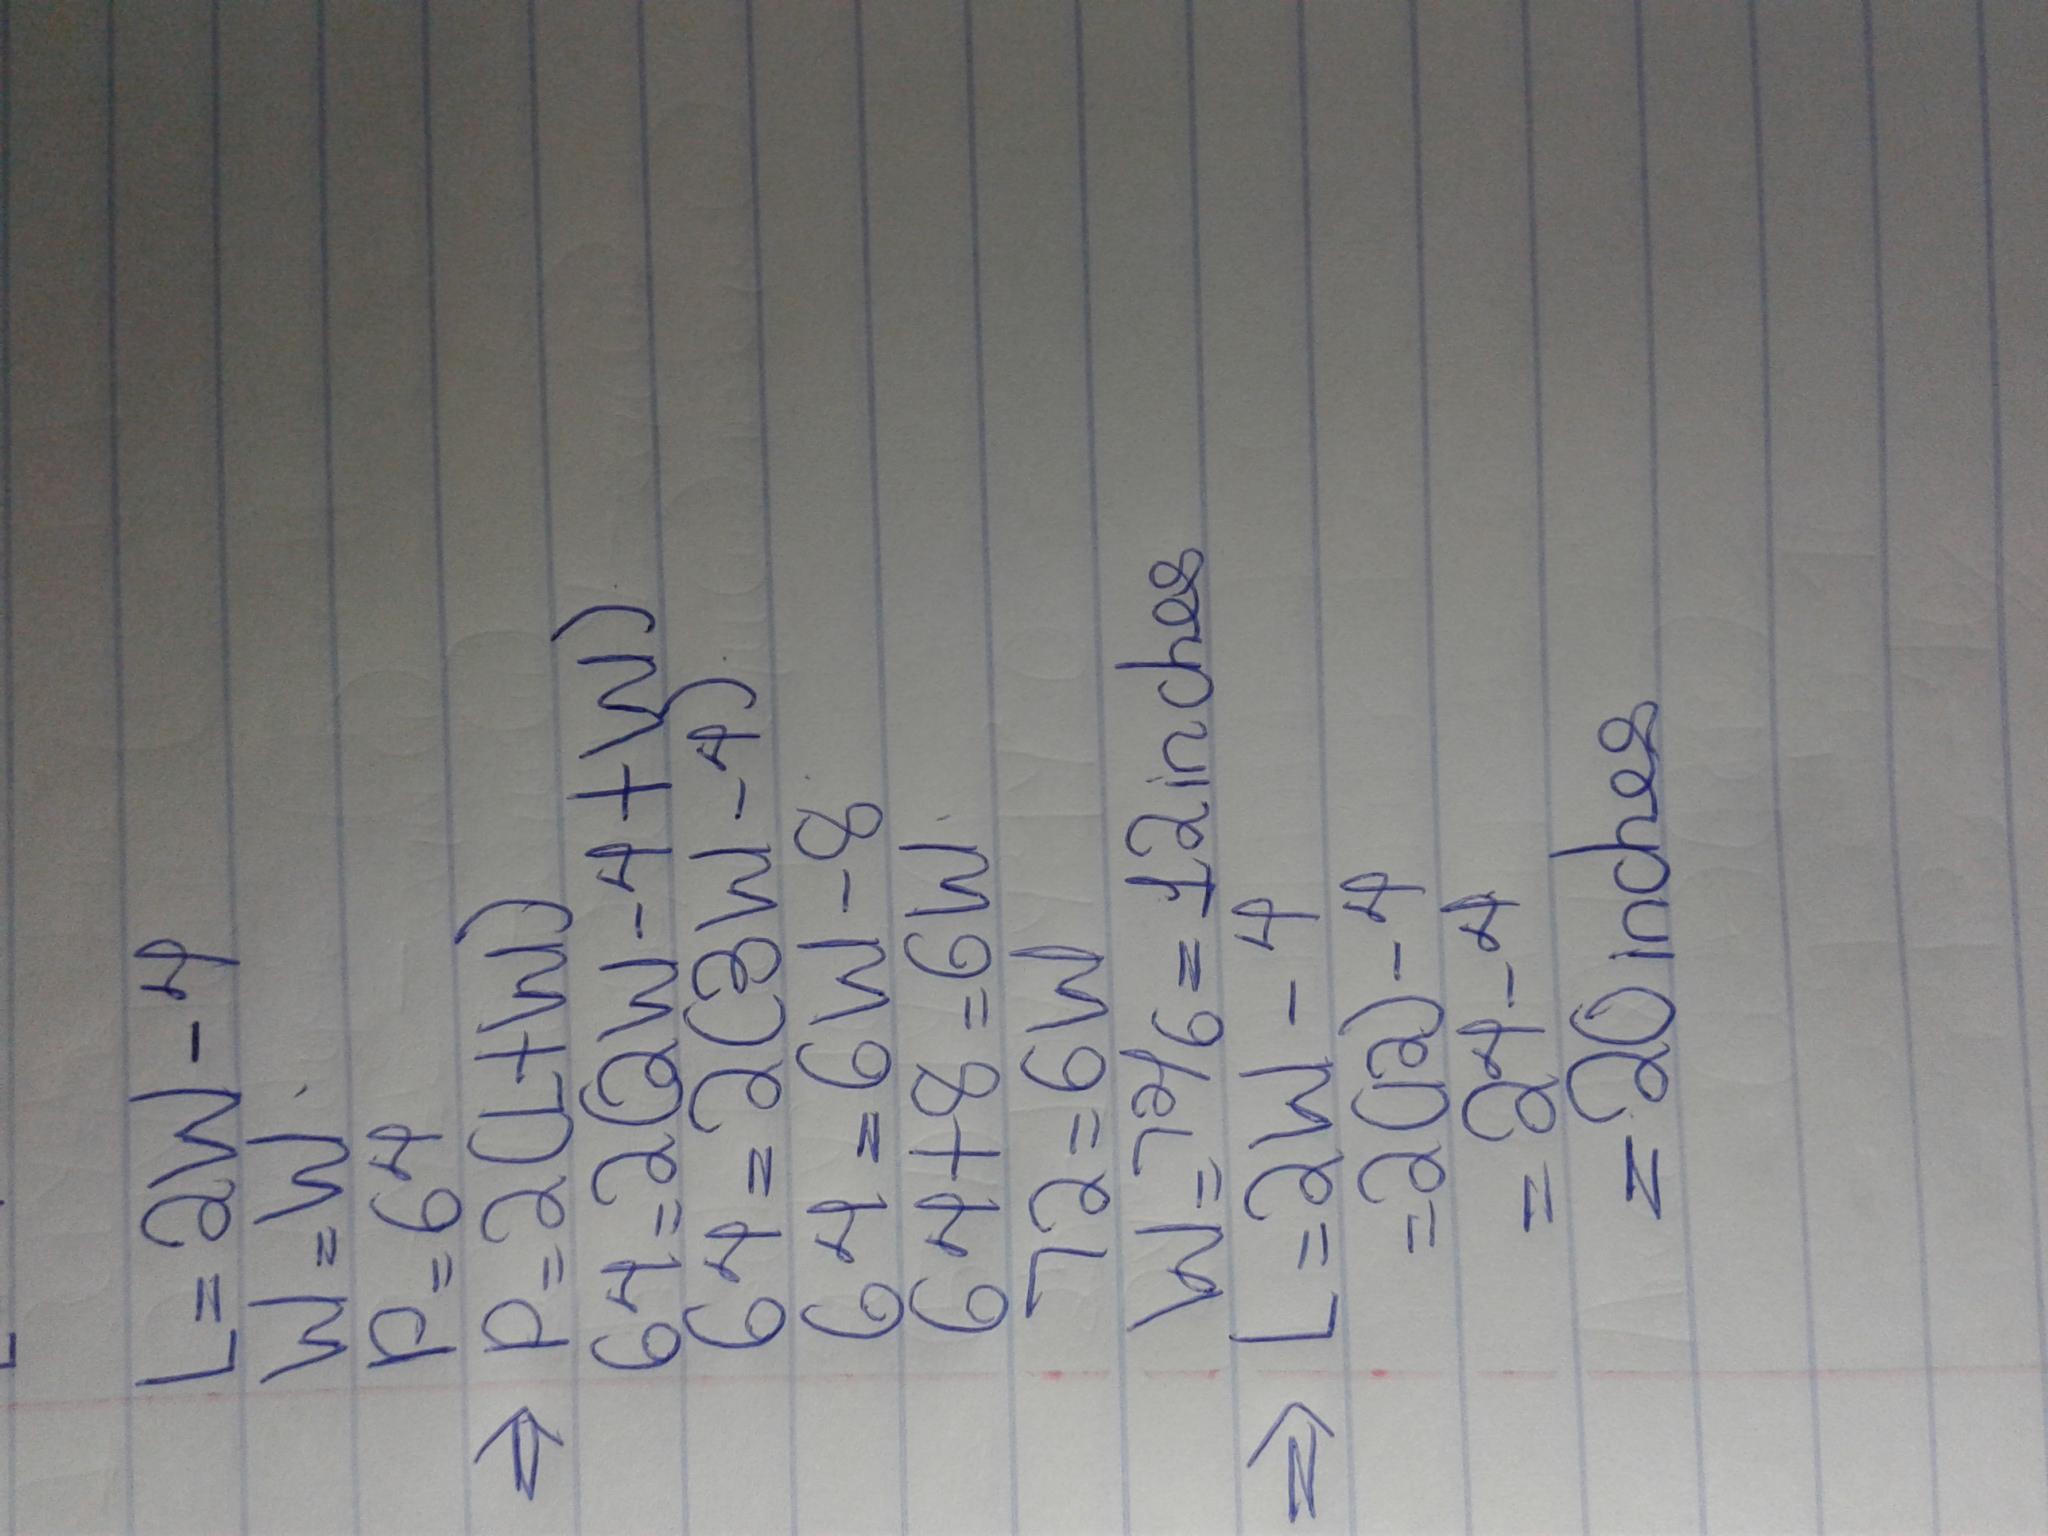 L=2W-4
W=W
P=64
⇒ P=2(L+W)
64=2(2W-4+W)
64=2(3W-4)
64=6W-8
64+8=6W
72=6W
W=72/6=12inches
⇒ L=2W-4
=2(12)-4
=24-4
=20inches